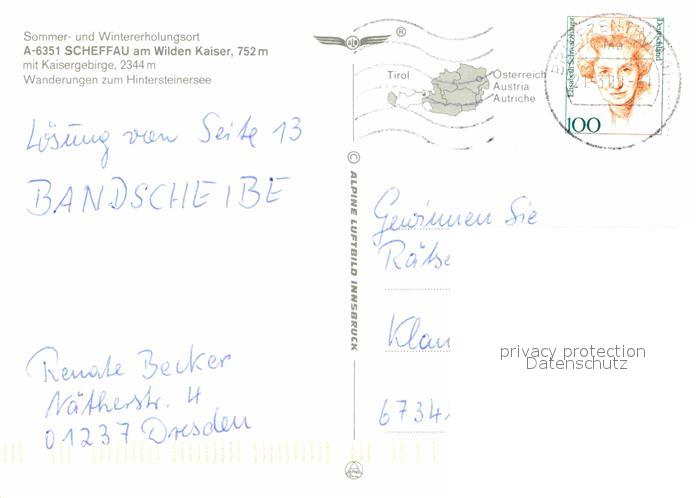 Sommer- und Wintererholungsort
A-6351 SCHEFFAU am Wilden Kaiser, 752 m
mit Kaisergebirge, 2344 m
Wanderungen zum Hintersteinersee
®
Tirol
Österreich
Austria
Autriche
Elisabeth Schwarzhaupt
Deutschland
100
Lösung von Seite 13
BANDSCHEIBE
© ALPINE LUFTBILD INNSBRUCK
Gewinnen Sie
Rätse
Klau
6734
privacy protection
Datenschutz
Renate Becker
Nätherstr. 4
01237 Dresden